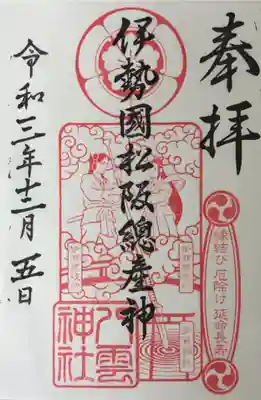 奉拝
伊勢國松阪總産神
令和三年十二月五日
縁結び 厄除け 延命長寿
八雲
神社